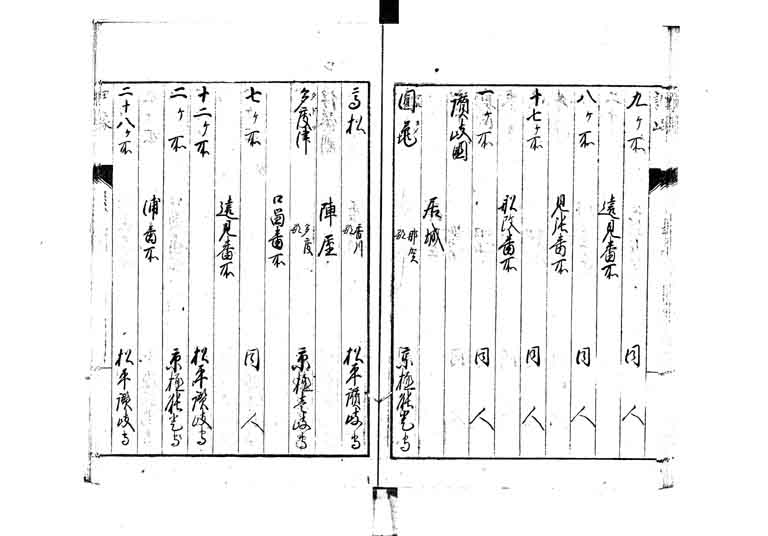 九ヶ所 同人
遠見番所
八ヶ所 同人
見張番所
十七ヶ所 同人
船改番所
一ヶ所 同人
讃岐國
居城
圓亀 那賀郡 京極能登守
高松 香川郡 松平讃岐守
陣屋
多度津 多度郡 京極壱岐守
口留番所
七ヶ所 同人
遠見番所
十二ヶ所 松平讃岐守
二ヶ所 京極能登守
浦番所
二十八ヶ所 松平讃岐守